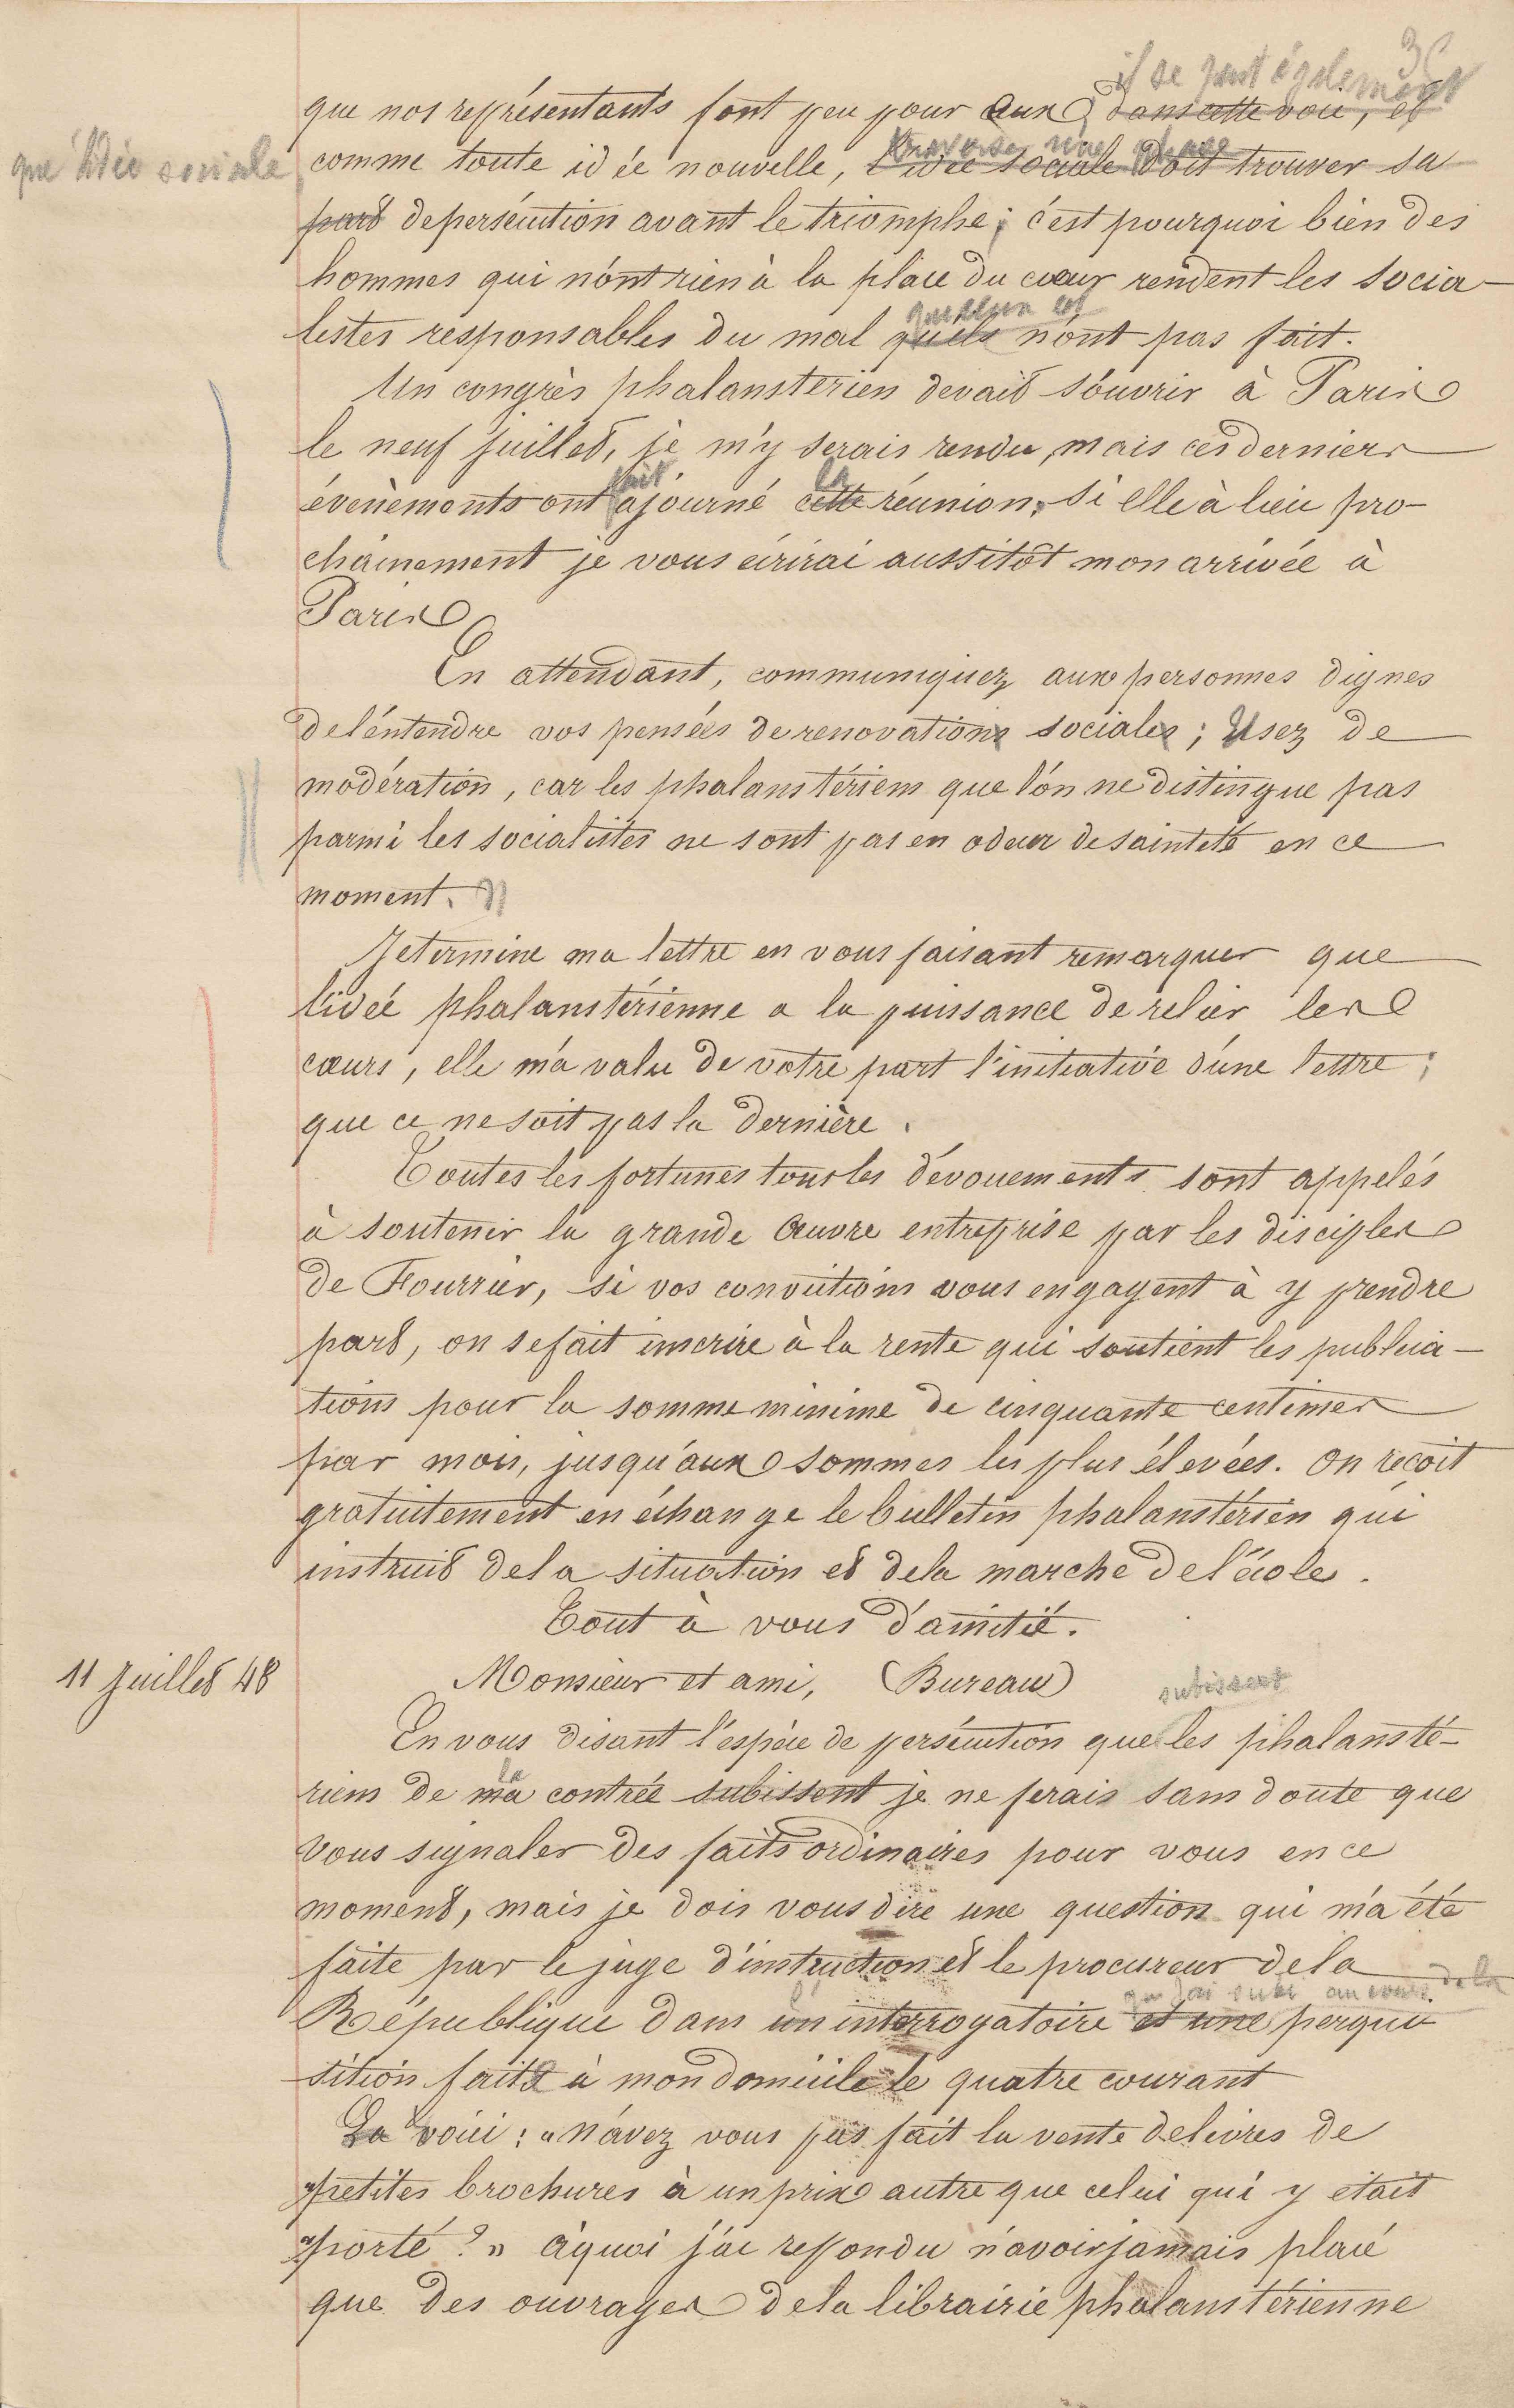 36
il se peut également
que nos représentants font peu pour eux, dans cette voie, et
que l'idée sociale
traverse une phase
comme toute idée nouvelle, l'idée sociale doit trouver sa
part de persécution avant le triomphe; c'est pourquoi bien des
hommes qui n'ont rien à la place du cœur rendent les socia-
listes responsables du mal qu'ils n'ont pas fait.
Un congrès phalanstérien devait s'ouvrir à Paris
le neuf juillet, je m'y serais rendu, mais ces derniers
fait la
évenèments ont ajourné cette réunion. Si elle à lieu pro-
chainement je vous écrirai aussitôt mon arrivée à
Paris
En attendant, communiquez aux personnes dignes
de l'entendre vos pensées de renovations sociales; Usez de
modération, car les phalanstériens que l'on ne distingue pas
parmi les socialistes ne sont pas en odeur de sainteté en ce
moment.
Je termine ma lettre en vous faisant remarquer que
l'idée phalanstérienne a la puissance de relier les
cœurs, elle m'a value de votre part l'initiative d'une lettre;
que ce ne soit pas la dernière.
Toutes les fortunes tous les dévouements sont appelés
à soutenir la grande Œuvre entreprise par les disciples
de Fourrier, si vos convictions vous engagent à y prendre
part, on se fait inscrire à la rente qui soutient les publica-
tions pour la somme minime de cinquante centimes
par mois, jusqu'aux sommes les plus élevées. On reçoit
gratuitement en échange le bulletin phalanstérien qui
instruit de la situation et de la marche de l'école.
Tout à vous d'amitié.
11 Juillet 48
Monsieur et ami, (Bureau)
subissent
En vous disant l'espèce de persécution que les phalansté-
la
riens de ma contrée subissent je ne ferais sans doute que
vous signaler des faits ordinaires pour vous en ce
moment, mais je dois vous dire une question qui m'a été
faite par le juge d'instruction et le procureur de la
l' que j'ai subi au cours de la
République dans un interrogatoire et une perqui
sition faite à mon domicile le quatre courant
La voici: « N'avez vous pas fait la vente de livres de
"petites brochures à un prix autre que celui qui y était
"porté? » à quoi j'ai repondu n'avoir jamais placé
que des ouvrages de la librairie phalanstérienne